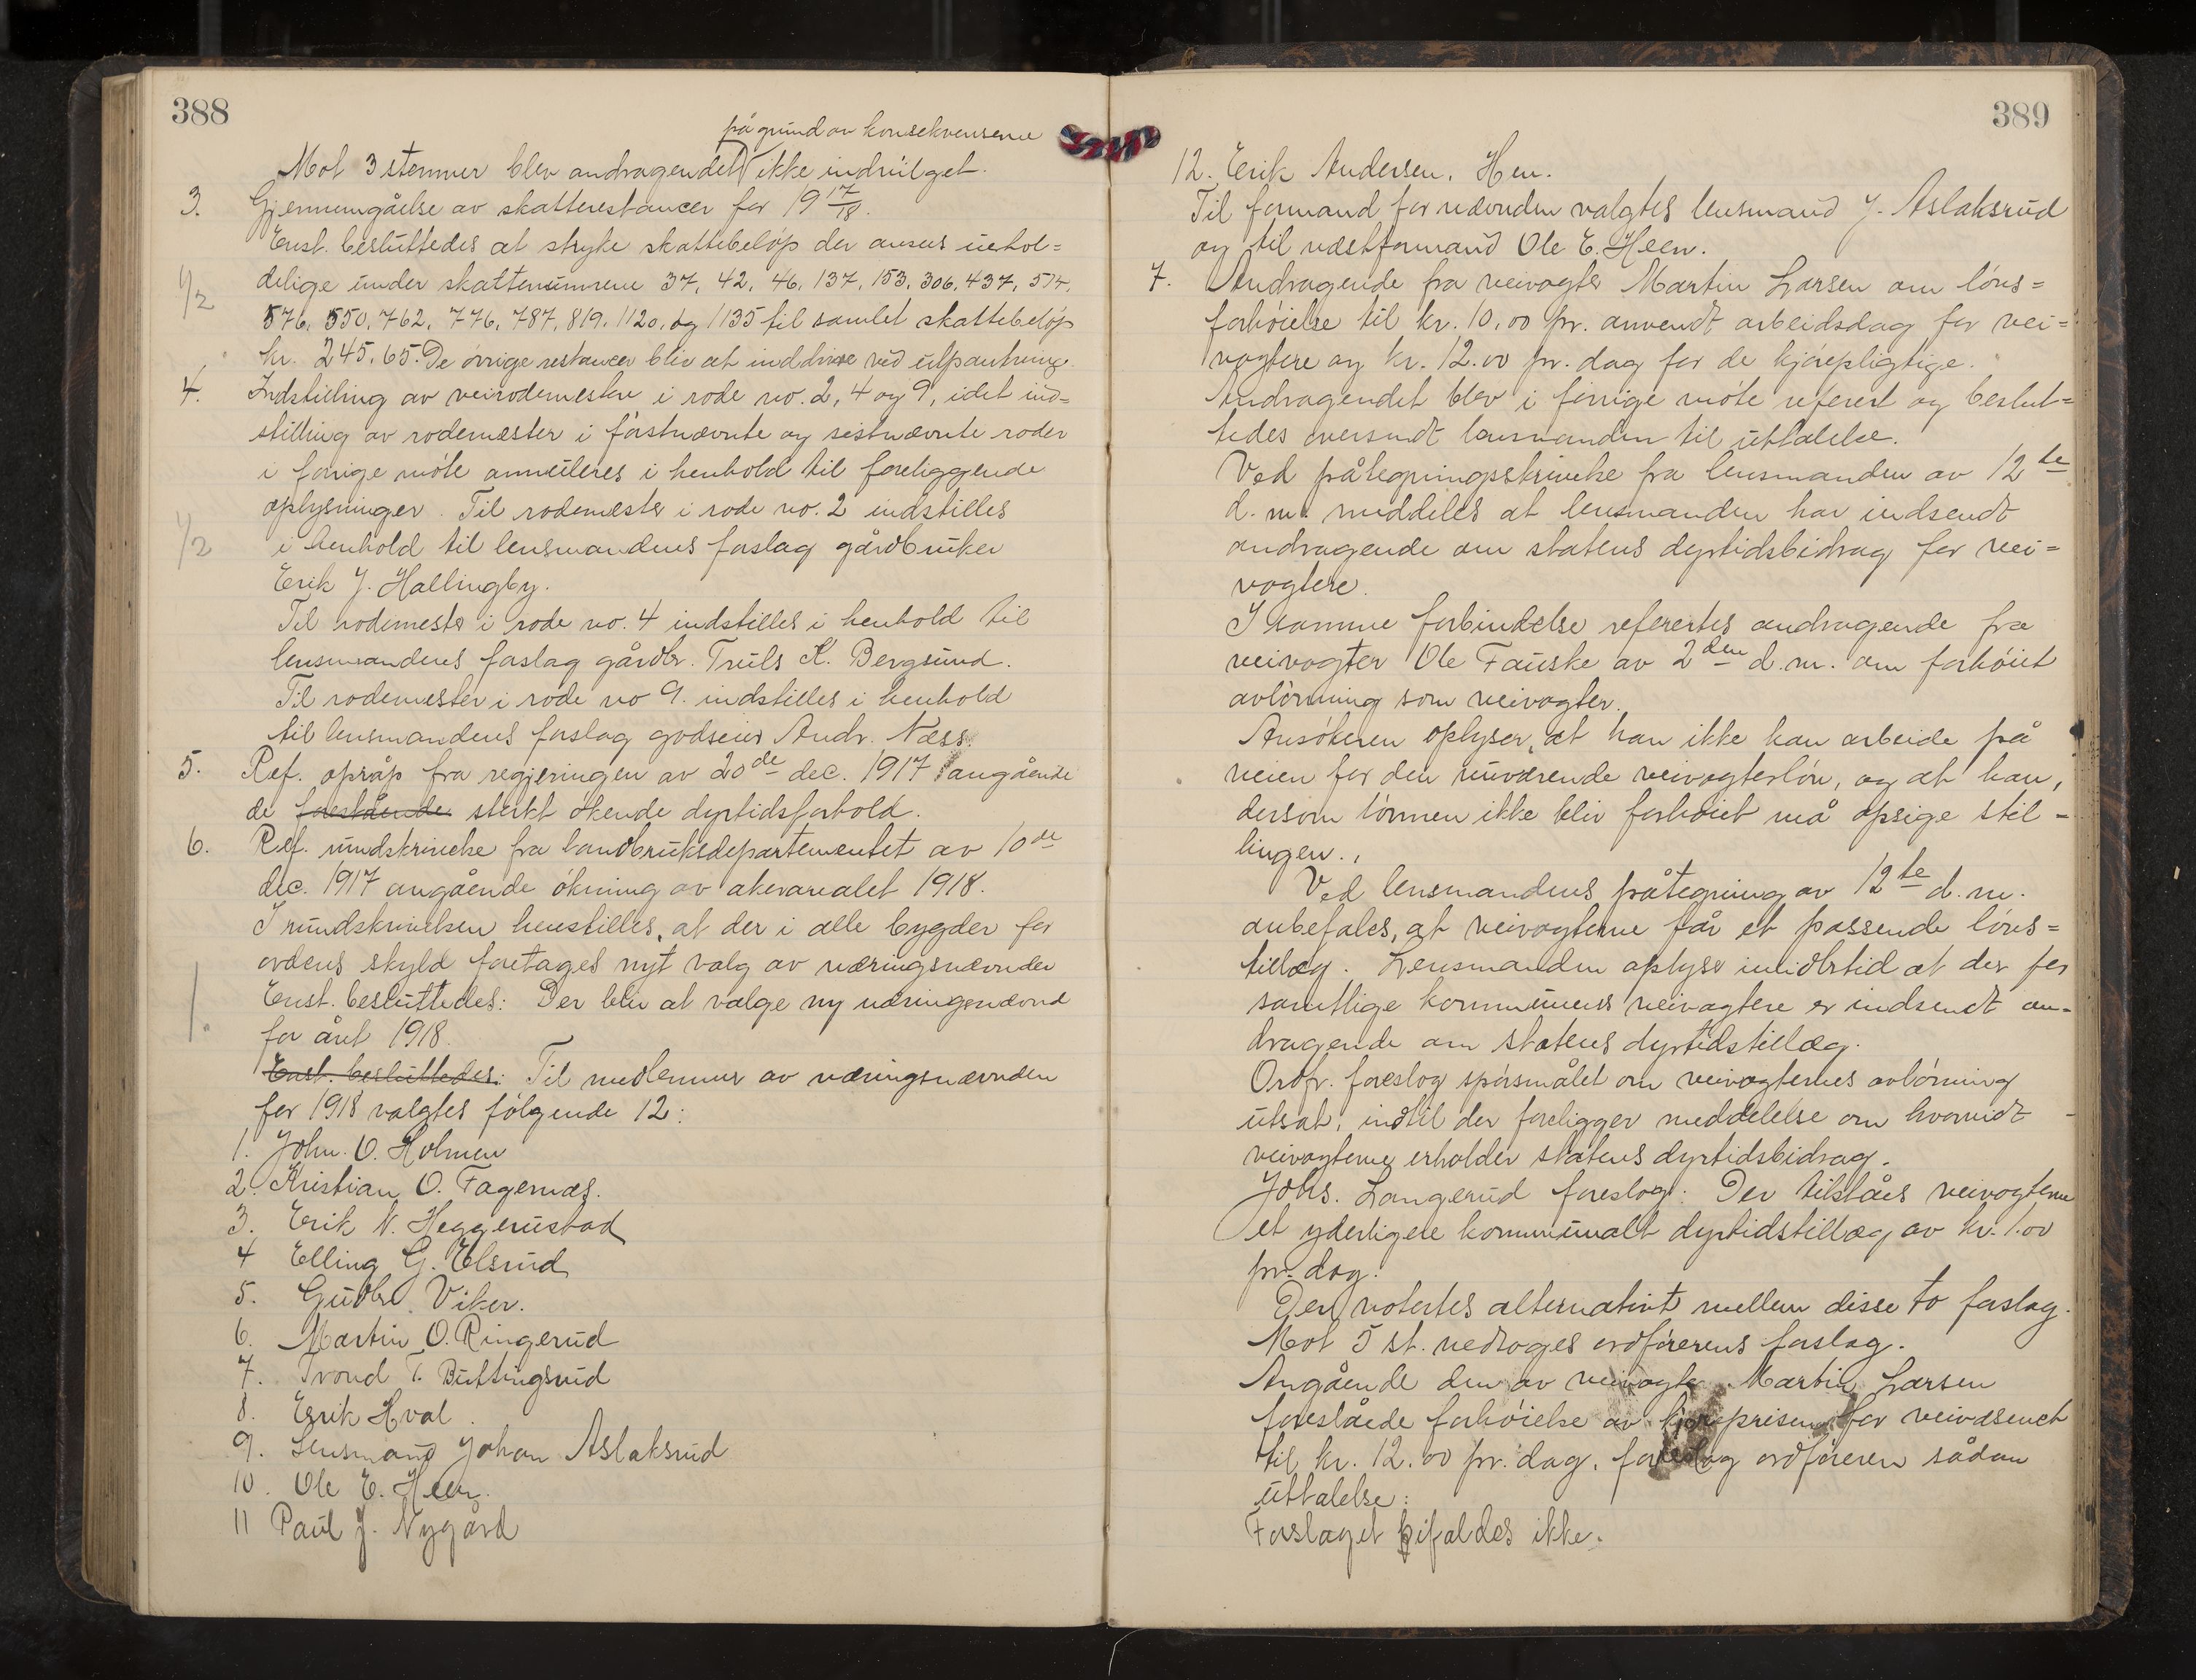 388
på grund av konsekvenserne
Mot 3 stemmer blev andragendet ikke indvilget.
3. Gjennemgåelse av skatterestancer for 19 17/18.
Enst. besluttedes at stryke skattebeløp der ansees uehol=
delige under skattenumrene 37, 42, 46, 137, 153, 306, 437, 514,
1/2
576, 550, 762, 776, 787, 819, 1120, og 1135 til samlet skattebeløp
kr. 245.65. De øvrige restancer bliv at inddrive ved utpantning.
4. Indstilling av veirodemestere i rode no. 2, 4 og 9, idet ind=
stilling av rodemester i førstnævnte og sistnævnte roder
i forrige møte annuleres i henhold til foreliggende
oplysninger. Til rodemester i rode no. 2 indstilles
1/2
i henhold til lensmandens forslag gårdbruker
Erik J. Hallingby.
Til rodemester i rode no. 4 indstilles i henhold til
lensmandens forslag gårdbr. Truls K. Bergsund.
Til rodemester i rode no 9. indstilles i henhold
til lensmandens forslag godseier Andr. Næss.
5. Ref. opråp fra regjeringen av 20de dec. 1917 angående
de forestående sterkt økende dyrtidsforhold.
6. Ref. rundskrivelse fra landbruksdepartementet av 10de
dec. 1917 angående økning av akerarealet 1918.
I rundskrivelsen henstilles, at der i alle bygder for
ordens skyld foretages nyt valg av næringsnævnder
Enst. besluttedes: Der bliv at vælge ny næringsnævnd
1.
for året 1918.
Enst. besluttedes: Til medlemmer av næringsnævnden
for 1918 valgtes følgende 12:
1. John. O. Holmen
2. Kristian O. Fagernæs.
3. Erik N. Heggerustad
4 Elling G. Elsrud
5. Gudbr. Viker.
6. Martin O. Ringerud
7. Trond T. Buttingsrud
8. Erik Hval.
9. Lensmand Johan Aslaksrud
10. Ole E. Heen.
11 Paul J. Nygård
389
12. Erik Andersen, Hen.
Til formand for nævnden valgtes lensmand J. Aslaksrud
og til næstformand Ole E. Heen.
7. Andragende fra veivogter Martin Larsen om løns=
forhøielse til kr. 10.00 pr. anvendt arbeidsdag for vei=
vogtere og kr. 12.00 pr. dag for de kjørepligtige.
Andragendet blev i forrige møte referert og beslut=
tedes oversendt lensmanden til uttalelse.
Ved påtegningsskrivelse fra lensmanden av 12te
d. m. meddeles at lensmanden har indsendt
andragende om statens dyrtidsbidrag for vei=
vogtere.
I samme forbindelse refereres andragende fra
veivogter Ole Fauske av 2den d.m. om forhøiet
avlønning som veivogter.
Ansøkeren oplyser, at han ikke kan arbeide på
veien for den nuværende veivogterløn, og at han,
dersom lønnen ikke bliv forhøiet må opsige stil-
lingen.
Ved lensmandens påtegning av 12te d. m.
anbefales, at veivogterne får et passende løns=
tillæg. Lensmanden oplyser imidlertid at der for
samtlige kommunens veivogtere er indsendt an-
dragende om statens dyrtidstillæg.
Ordf. foreslog spørsmålet om veivogternes avlønning
utsat, indtil der foreligger meddelelse om hvorvidt
veivogterne erholder statens dyrtidsbidrag.
Johs. Langerud foreslog: Der tilståes veivogterne
et yderligere kommunalt dyrtidstillæg av kr. 1.00
pr. dag.
Der votertes alternativt mellem disse to forslag.
Mot 5 st. vedtoges ordførerens forslag.
Angående den av veivogter Martin Larsen
foreslåede forhøielse av kjøreprisen for veivæsenet
til kr. 12.00 pr. dag, foreslog ordføreren sådan
uttalelse:
Forslaget bifaldes ikke.